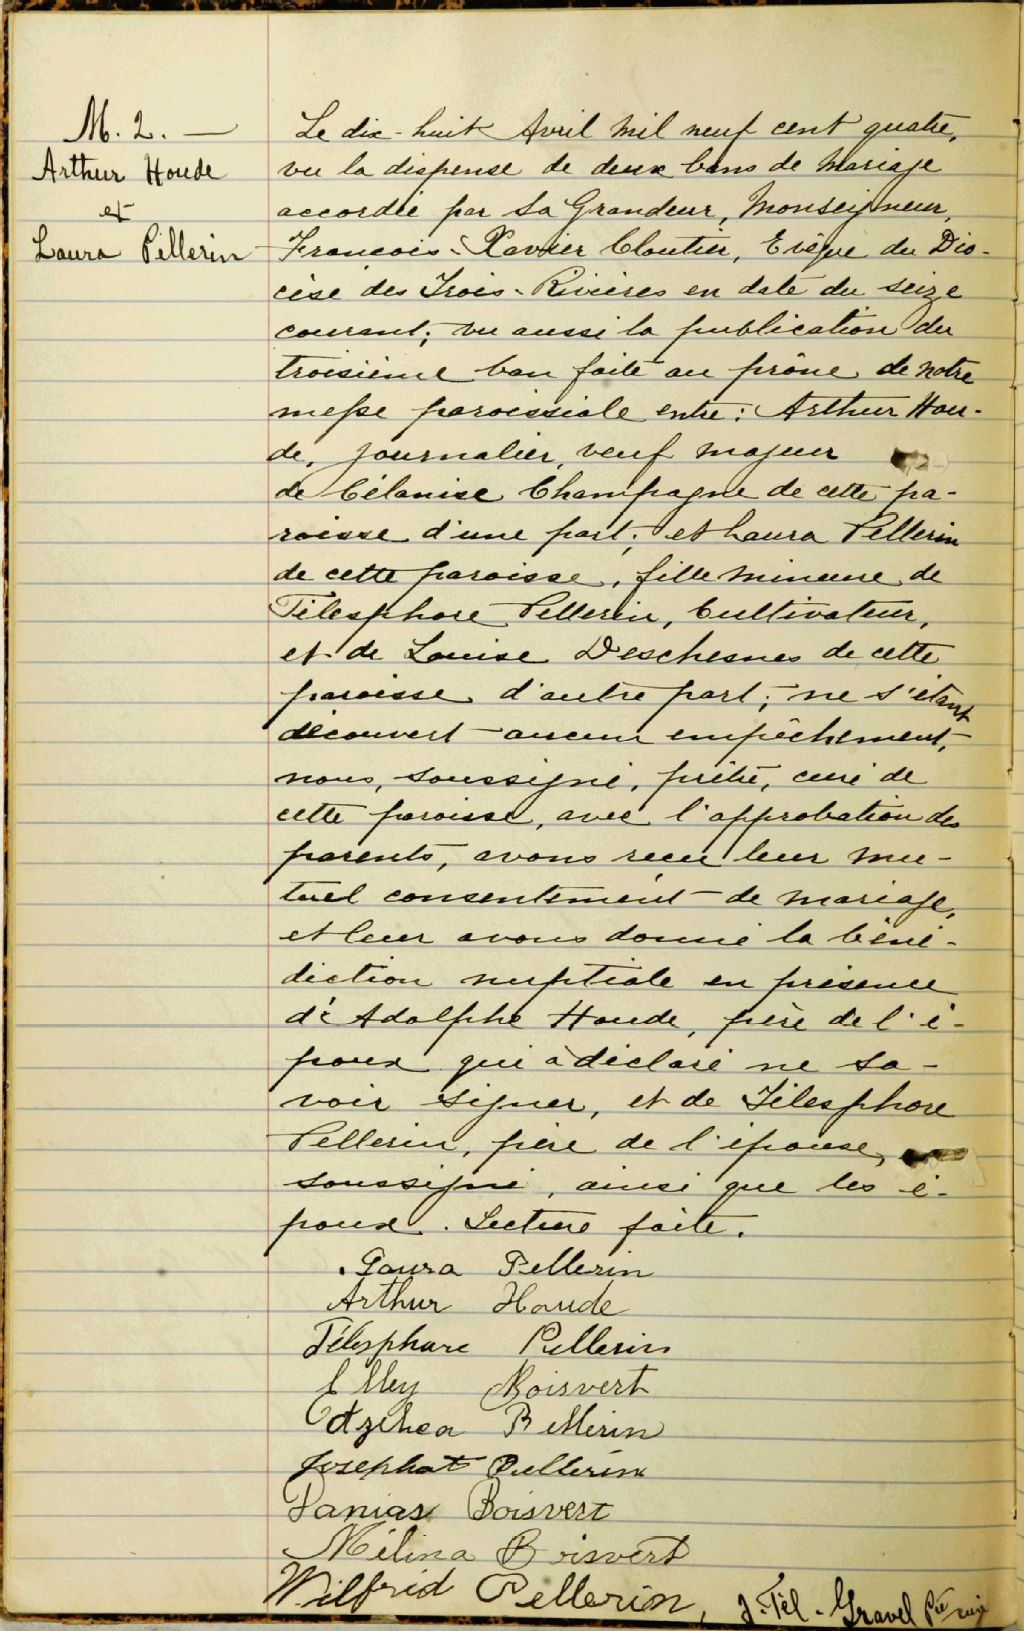 M. 2. —
Arthur Houde
et
Laura Pellerin
Le dix-huit Avril mil neuf cent quatre,
vu la dispense de deux bans de mariage
accordée par Sa Grandeur, Monseigneur,
François-Xavier Cloutier, Evêque du Dio-
cèse des Trois-Rivières en date du seize
courant; vu aussi la publication du
troisième ban faite au prône de notre
messe paroissiale entre: Arthur Hou-
de, journalier, veuf majeur
de Célanise Champagne de cette pa-
roisse d'une part; et Laura Pellerin
de cette paroisse, fille mineure de
Télesphore Pellerin, Cultivateur,
et de Louise Deschesnes de cette
paroisse d'autre part; ne s'étant
découvert aucun empêchement,
nous, soussigné, prêtre, curé de
cette paroisse, avec l'approbation des
parents, avons reçu leur mu-
tuel consentement de mariage,
et leur avons donné la béné-
diction nuptiale en présence
d'Adolphe Houde, père de l'é-
poux qui a déclaré ne sa-
voir signer, et de Télesphore
Pellerin, père de l'épouse,
soussigné, ainsi que les é-
poux. Lecture faite.
Laura Pellerin
Arthur Houde
Télesphore Pellerin
Boisvert
Pellerin
Josephat Pellerin
Boisvert
Mélina Boisvert
Wilfrid Pellerin, J.-Tél.-Gravel Ptre curé